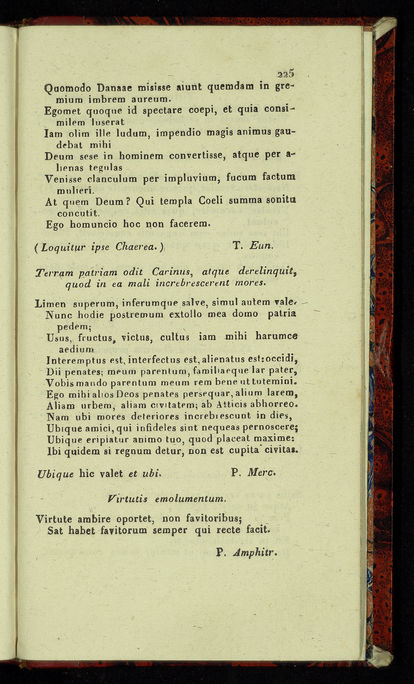 225
Quomodo Danaae misisse aiunt quemdam in gre-
mium imbrem aureum.
Egomet quoque id spectare coepi, et quia consi-
milem luserat
Iam olim ille ludum, impendio magis animus gau-
debat mihi
Deum sese in hominem convertisse, atque per a-
lienas tegulas
Venisse clanculum per impluvium, fucum factum
mulieri.
At quem Deum? Qui templa Coeli summa sonitu
concutit.
Ego homuncio hoc non facerem.
(Loquitur ipse Chaerea.) T. Eun.
Terram patriam odit Carinus, atque derelinquit,
quod in ea mali increbrescerent mores.
Limen superum, inferumque salve, simul autem vale.
Nunc hodie postremum extollo mea domo patria
pedem;
Usus, fructus, victus, cultus iam mihi harumce
aedium
Interemptus est, interfectus est, alienatus est: occidi,
Dii penates; meum parentum, familiaeque lar pater,
Vobis mando parentum meum rem bene ut tutemini.
Ego mihi alios Deos penates persequar, alium larem,
Aliam urbem, aliam civitatem; ab Atticis abhorreo.
Nam ubi mores deteriores increbrescunt in dies,
Ubique amici, qui infideles sint nequeas pernoscere;
Ubique eripiatur animo tuo, quod placeat maxime:
Ibi quidem si regnum detur, non est cupita civitas.
Ubique hic valet et ubi. P. Merc.
Virtutis emolumentum.
Virtute ambire oportet, non favitoribus;
Sat habet favitorum semper qui recte facit.
P. Amphitr.